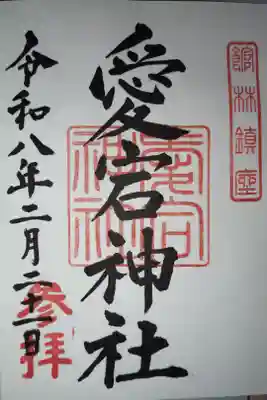 館林鎮座
愛宕神社
愛宕神社
参拝
令和八年二月二十一日